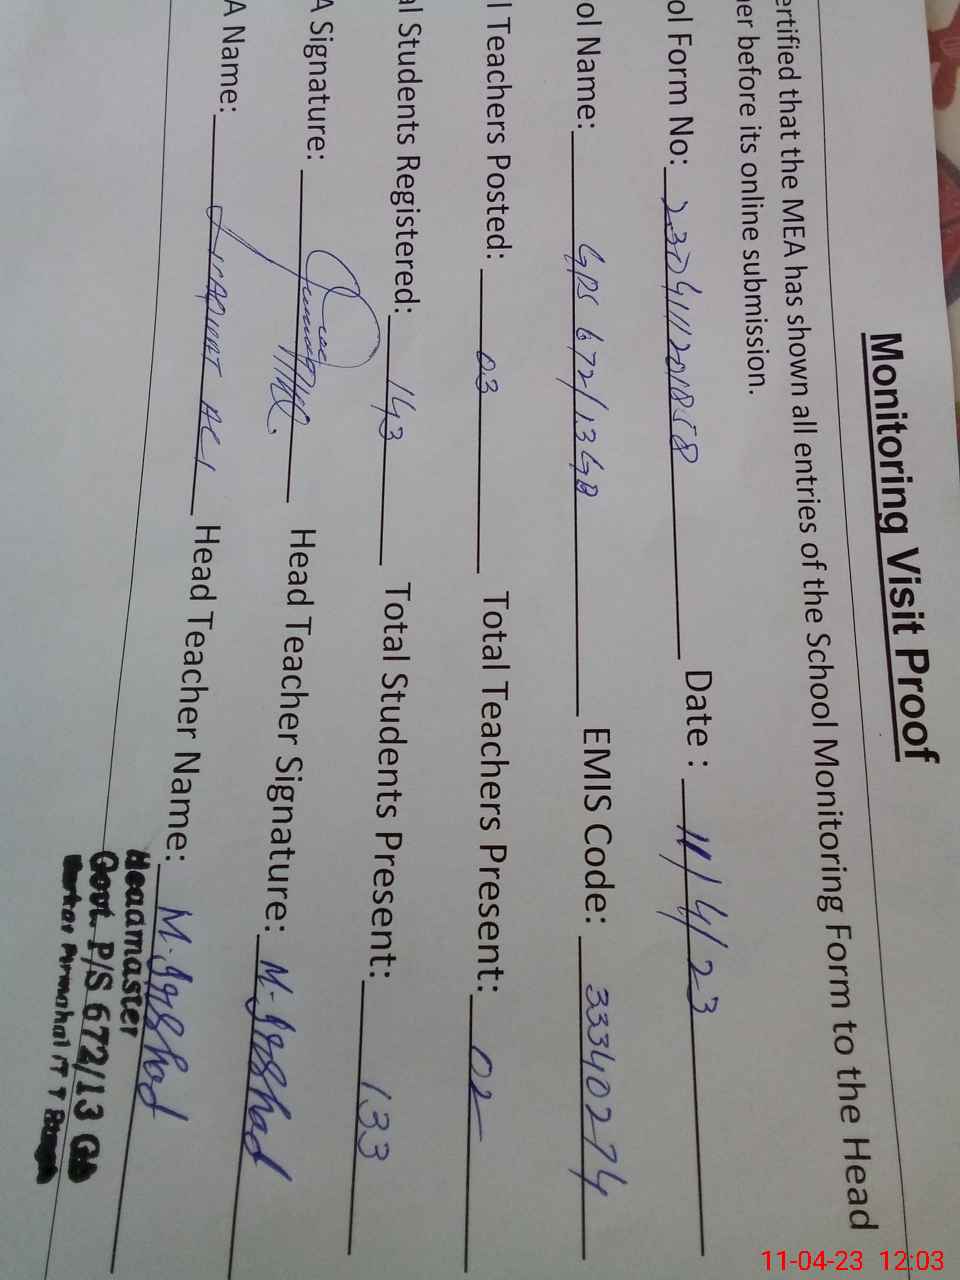 Monitoring Visit Proof
ertified that the MEA has shown all entries of the School Monitoring Form to the Head
her before its online submission.
ol Form No: 2304111201858 Date : 11/4/23
ol Name: GPS 672/13GB EMIS Code: 33340274
l Teachers Posted: 03 Total Teachers Present: 02
al Students Registered: 143 Total Students Present: 133
A Signature: Head Teacher Signature: M. Irshad
A Name: Head Teacher Name: M. Irshad
Headmaster
Govt. P/S 672/13 GB
11-04-23 12:03